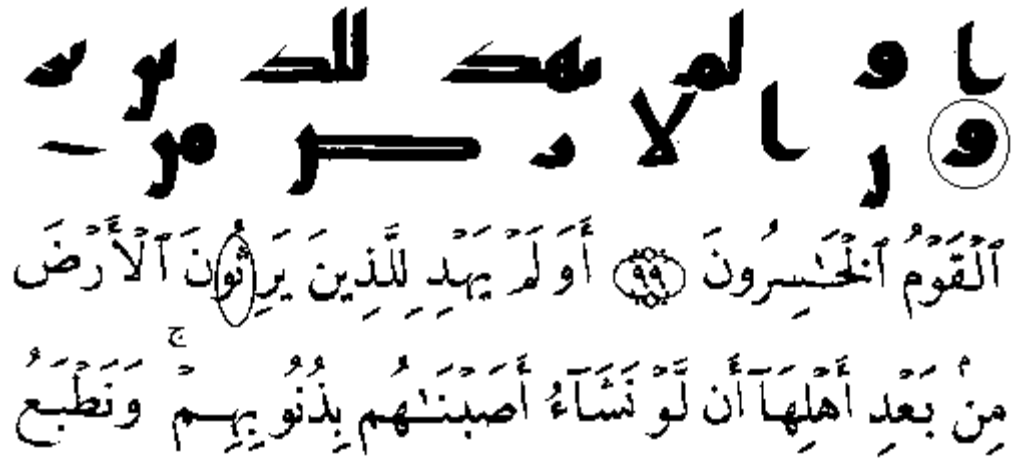 ا و لم ٮهد للد ٮں ٮر
و ں ا لا ر ص مں
ٱلْقَوْمُ ٱلْخَـٰسِرُونَ ٩٩ أَوَلَمْ يَهْدِ لِلَّذِينَ يَرِثُونَ ٱلْأَرْضَ
مِنۢ بَعْدِ أَهْلِهَآ أَن لَّوْ نَشَآءُ أَصَبْنَـٰهُم بِذُنُوبِهِمْ ۚ وَنَطْبَعُ